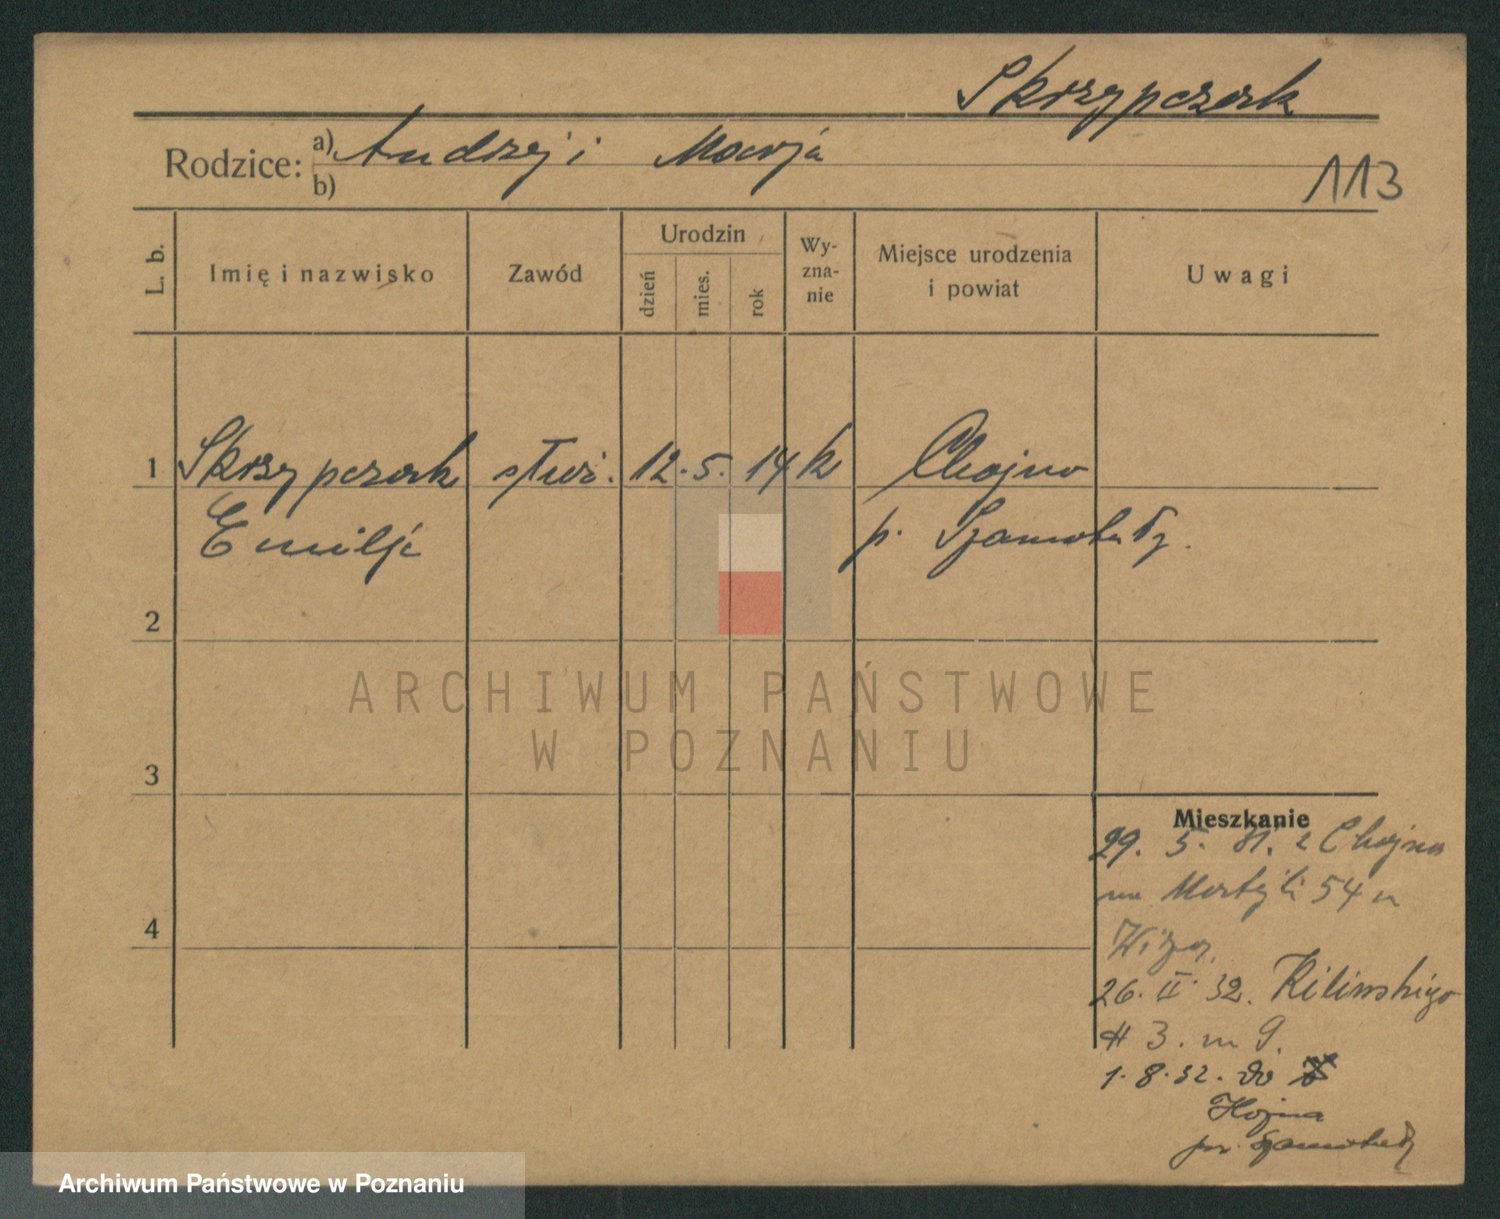 Skrzypczak
Rodzice: a) Andrzej i Marja
b)
113
L. b.
Imię i nazwisko
Zawód
Urodzin
dzień
mies.
rok
Wy-
zna-
nie
Miejsce urodzenia
i powiat
Uwagi
1 Skrzypczak służ. 12. 5. 14 k Chojno
Emilja p. Szamotuły.
2
3
4
ARCHIWUM PAŃSTWOWE
W POZNANIU
Mieszkanie
29. 5. 31. z Chojna
54
26. II. 32. Kilińskiego
3. m 9.
1. 8. 32. do
Hojna
pow. Szamotuły
Archiwum Państwowe w Poznaniu